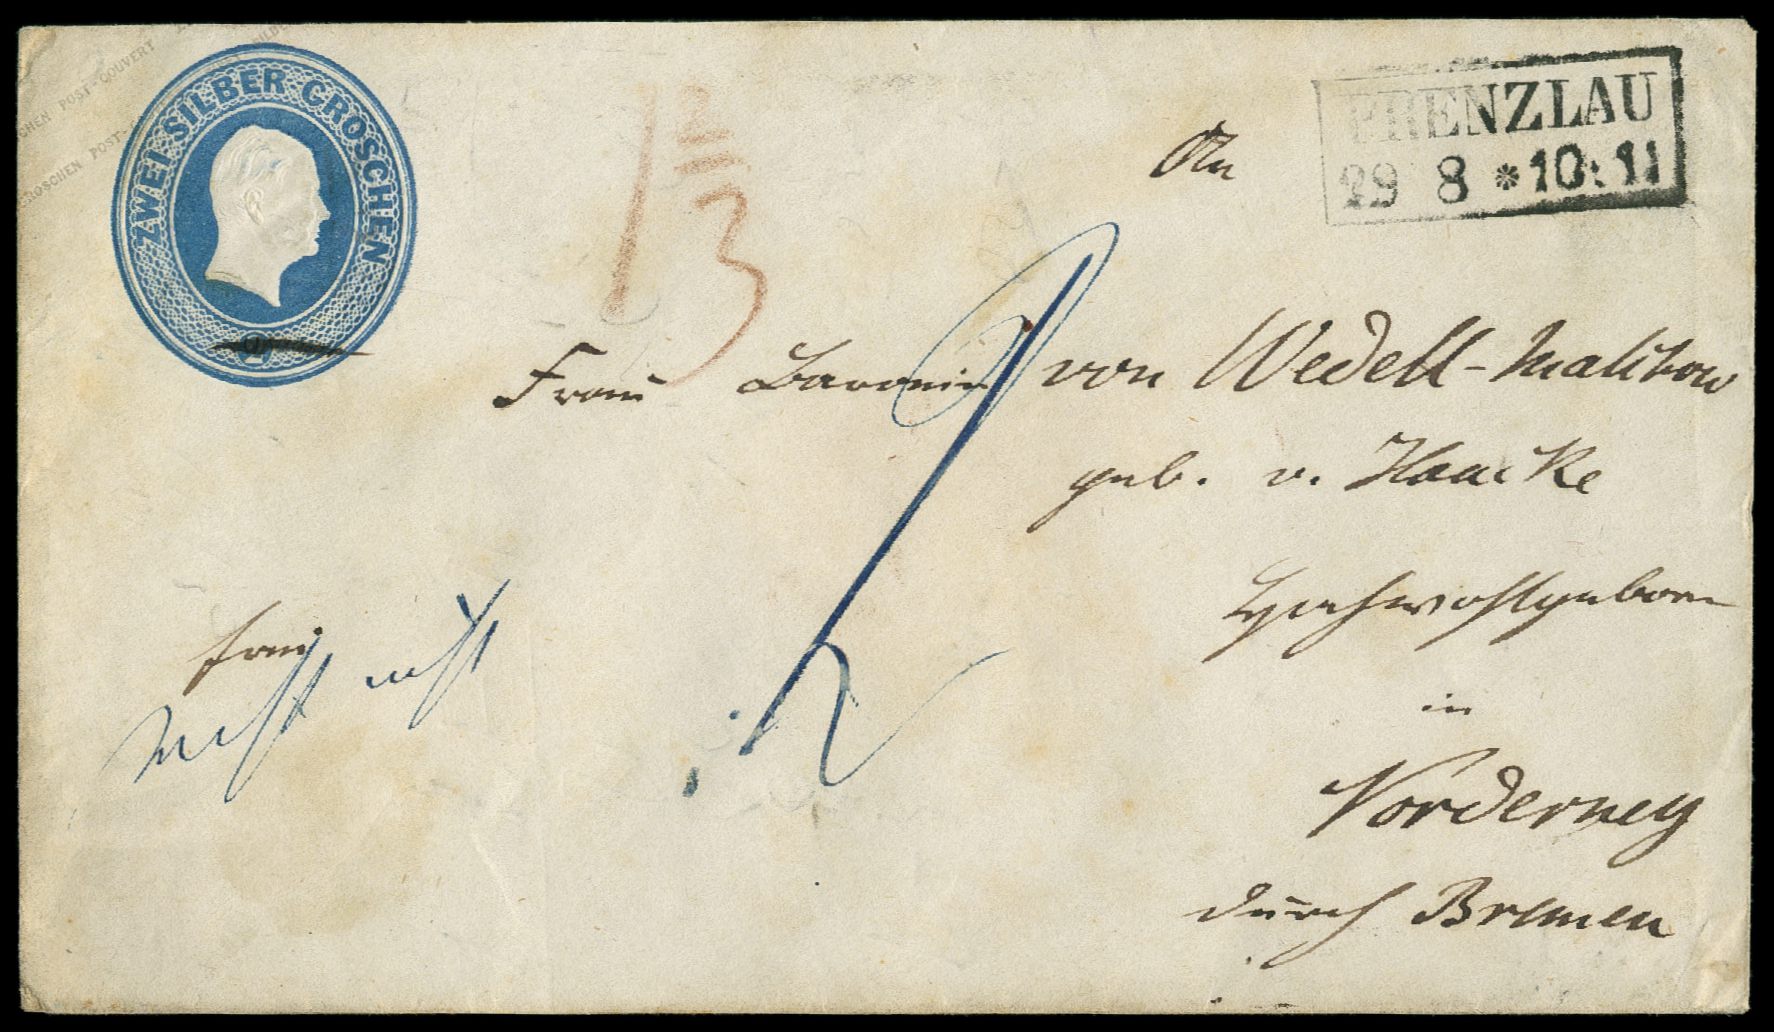 ZWEI SILBER GROSCHEN
2
GROSCHEN POST-COUVERT
PRENZLAU
29 8 * 10·11
1 2/3
An
Frau Baronin von Wedell-Malchow
geb. v. Haacke
Hochwohlgeboren
in
Norderney
durch Bremen
frei